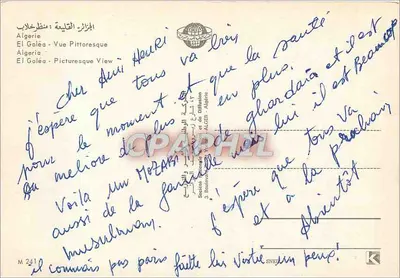 الجزائر القليعة : منظر خلاب
Algerie
El Goléa - Vue Pittoresque
Algeria
El Goléa - Picturesque View
Cher Ami Henri
j'espère que tous va bien
pour le moment et que la santé
sa meliore de plus en plus.
Voila un MOZABITE de ghardaia et il est
aussi de la famille mais lui il est Beaucoup
musulman.
j'espère que tous va
et a la prochain
Abientôt
il connais pas paris faite lui visiter un peux!
CPARAMA
M 241
K